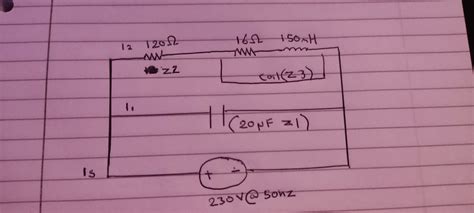 I2 120Ω 16Ω 150mH
Z2 coil(Z3)
I1
(20μF Z1)
Is + ÷
230V@50Hz